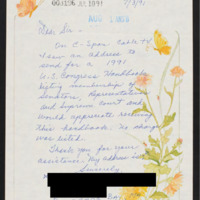 7/3/91
AUG 1 1991
Dear Sir -
On C-Span Cable TV
I saw an address to
send for a 1991
U.S. Congress Handbook
listing membership of
Senators, Representatives
and Supreme Court and
would appreciate receiving
this handbook. No charge
was listed.
Thank you for your
assistance. My address is
Sincerely